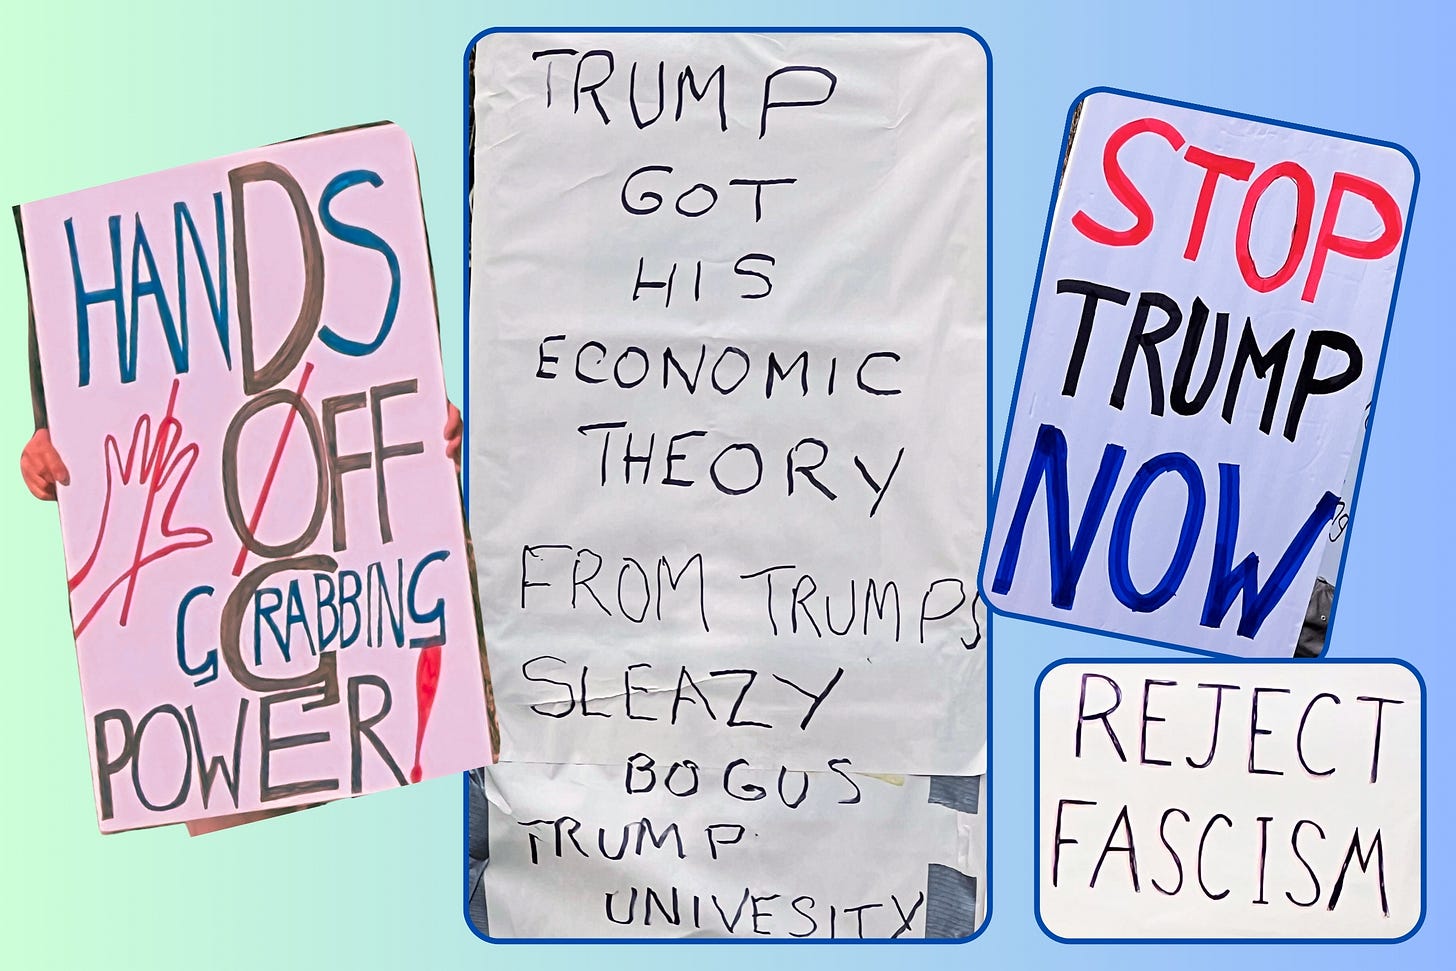 HANDS
OFF
GRABBING
POWER!
TRUMP
GOT
HIS
ECONOMIC
THEORY
FROM TRUMPS
SLEAZY
BOGUS
TRUMP
UNIVESITY
STOP
TRUMP
NOW
REJECT
FASCISM